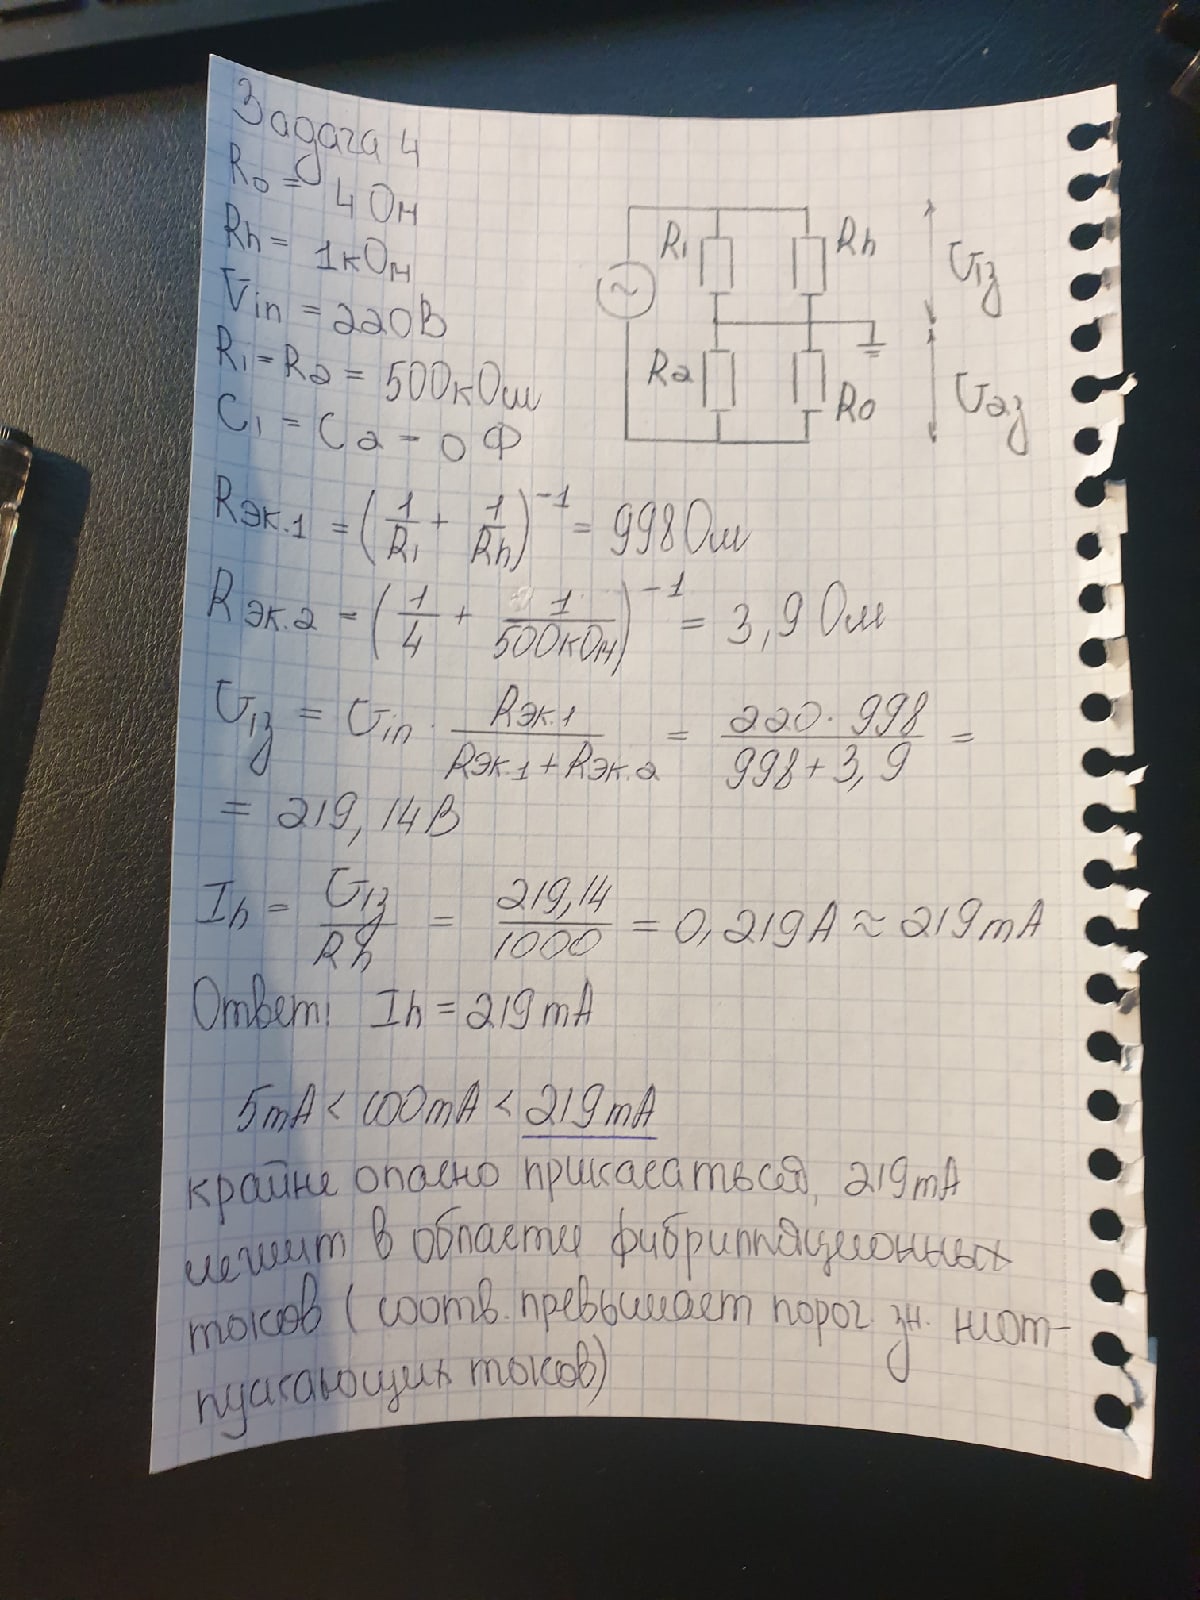 Задача 4
R0 = 4 Ом
Rh = 1кОм
Uin = 220В
R1 = R2 = 500кОм
C1 = C2 = 0 Ф
R1 Rh U1з
R2 R0 U2з
Rэк.1 = (1/R1 + 1/Rh)^-1 = 998 Ом
Rэк.2 = (1/4 + 1/500кОм)^-1 = 3,9 Ом
U1з = Uin · Rэк.1/(Rэк.1 + Rэк.2) = 220 · 998/(998 + 3,9) =
= 219,14В
Ih = U1з/Rh = 219,14/1000 = 0,219А ≈ 219mA
Ответ: Ih = 219mA
5mA < 100mA < 219mA
крайне опасно прикасаться, 219mA
лежит в области фибрилляционных
токов (соотв. превышает порог. зн. неот-
пускающих токов)